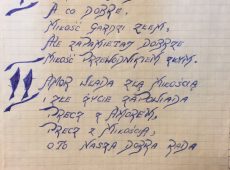 A CO DOBRE.
MIŁOŚĆ GARDZI ZŁEM,
ALE ZAPAMIĘTAJ DOBRZE
MIŁOŚĆ PRZEWODNIKIEM ZŁYM.
AMOR WŁADA ZŁĄ MIŁOŚCIĄ
I ZŁE ŻYCIE ZAPOWIADA
PRECZ Z AMOREM,
PRECZ Z MIŁOŚCIĄ,
OTO NASZA DOBRA RADA